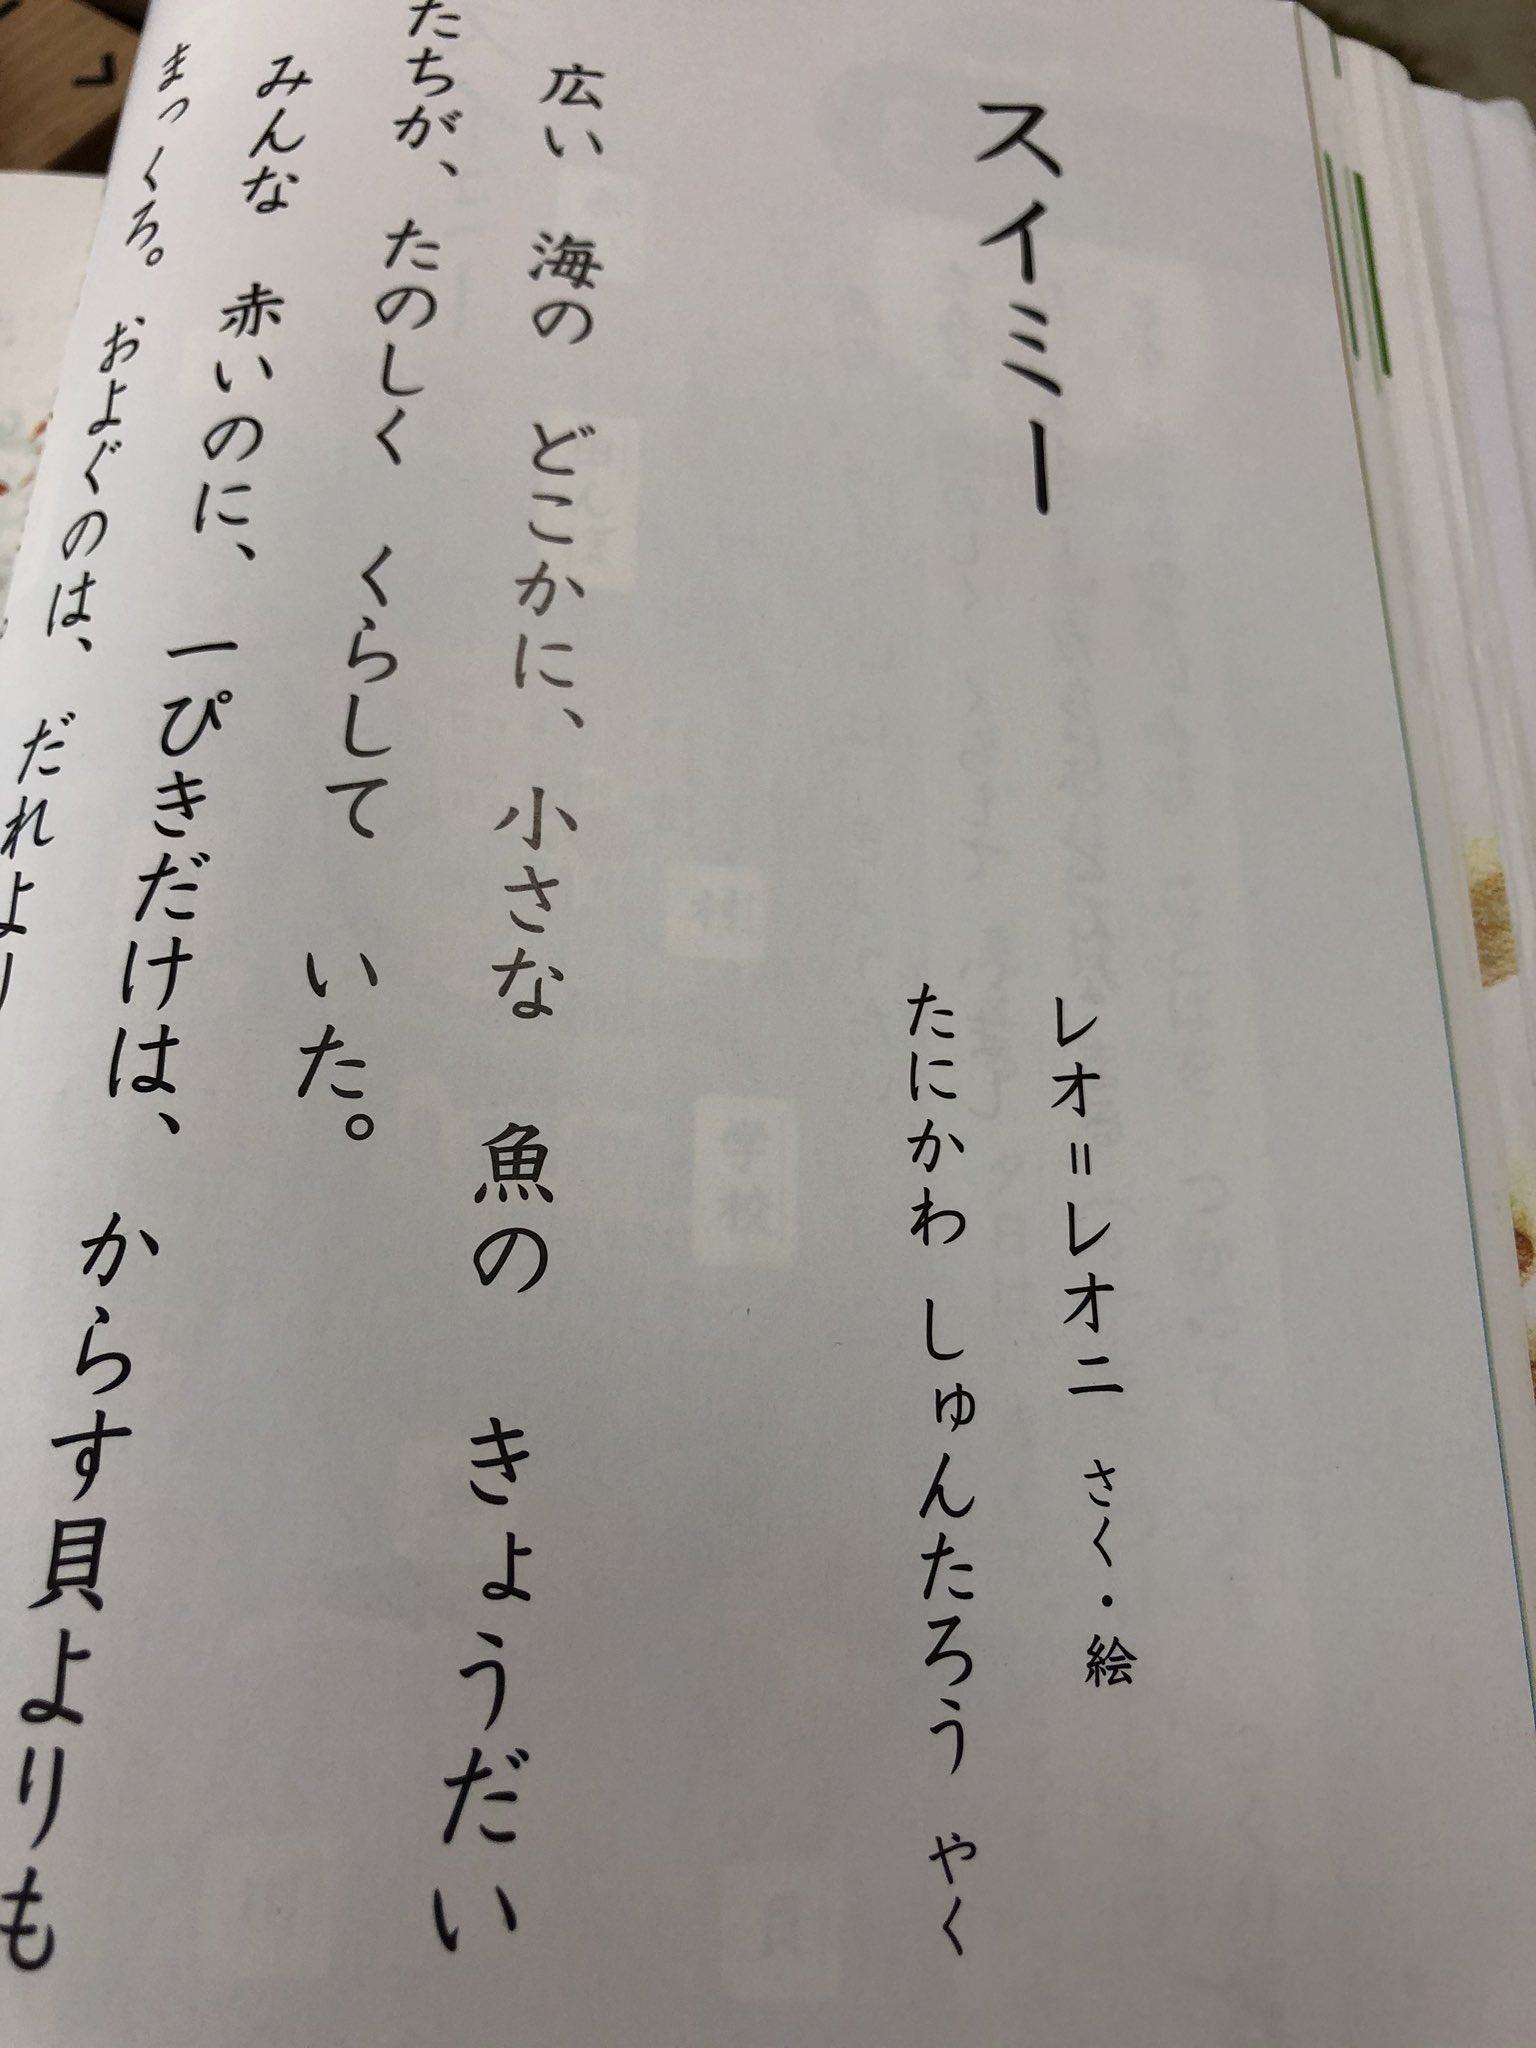 スイミー
レオ=レオニ さく・絵
たにかわ しゅんたろう やく
広い 海の どこかに、小さな 魚の きょうだい
たちが、たのしく くらして いた。
みんな 赤いのに、一ぴきだけは、からす貝よりも
まっくろ。およぐのは、だれより